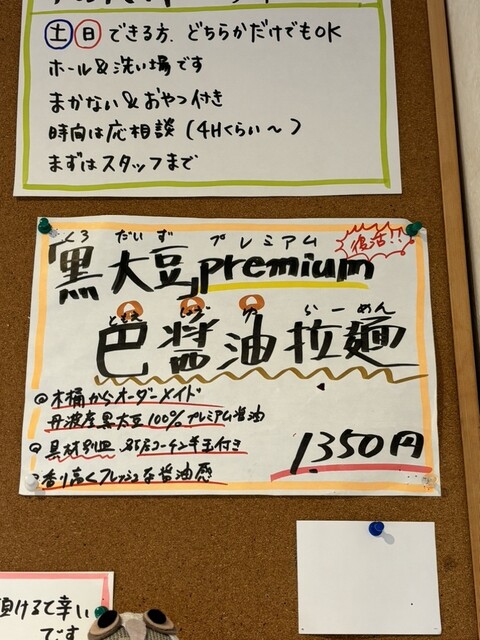 土 日 できる方、どちらかだけでもOK
ホール&洗い場です
まかない&おやつ付き
時間は応相談(4Hくらい〜)
まずはスタッフまで
復活!!
くろ だいず プレミアム
「黒大豆」premium
ともえ しょう ゆ らーめん
巴醤油拉麺
◎木桶からオーダーメイド
丹波産黒大豆100%プレミアム醤油
◎具材別皿 名古屋コーチン半玉付き
◎香り高くフレッシュな醤油感
1,350円
頂けると幸い
です